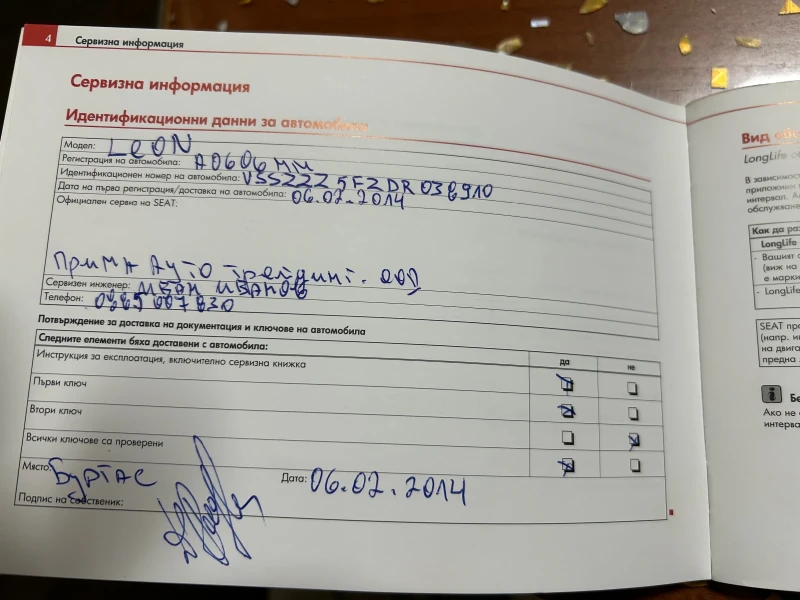 4 Сервизна информация
Сервизна информация
Идентификационни данни за автомобила
Модел: LEON
Регистрация на автомобила: А0606ММ
Идентификационен номер на автомобила: VSSZZZ5FZDR038910
Дата на първа регистрация/доставка на автомобила: 06.02.2014
Официален сервиз на SEAT:
Прима Ауто Трейдинг. ООД
Сервизен инженер: ИВАН ИВАНОВ
Телефон:
Потвърждение за доставка на документация и ключове на автомобила
Следните елементи бяха доставени с автомобила: да не
Инструкция за експлоатация, включително сервизна книжка
Първи ключ
Втори ключ
Всички ключове са проверени
Място: Бургас Дата: 06.02.2014
Подпис на собственик:
Вид
LongLife
В зависимост
приложими
интервал.
обслужване
Как да раз
LongLife
- Вашият
(виж на
е марки
- LongLife
SEAT пре
(напр. ин
на двига
предна
i Бе
Ако не
интерва